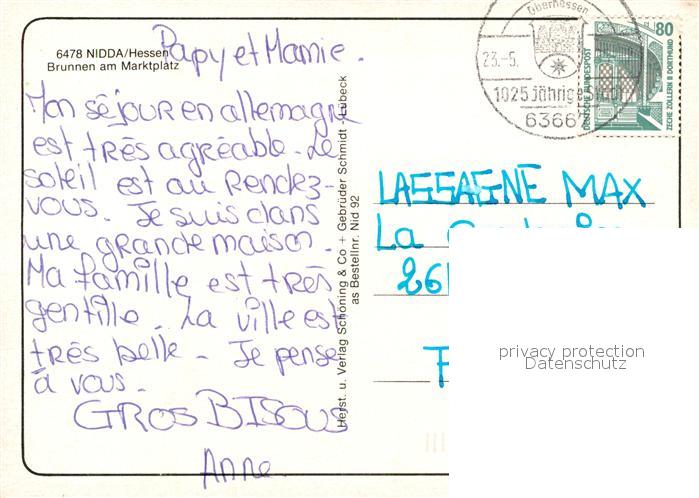 6478 NIDDA/Hessen
Brunnen am Marktplatz
Papy et Mamie.
Mon séjour en allemagne
est trés agréable. Le
soleil est au rendez-
vous. Je suis dans
une grande maison.
Ma famille est trés
gentille. La ville est
trés belle. Je pense
à vous.
GROS BISOUS
Anne
Herst. u. Verlag Schöning & Co + Gebrüder Schmidt - Lübeck
as Bestellnr. Nid 92
Oberhessen
23.-5.
1025jährige Stadt
63667
80
DEUTSCHE BUNDESPOST
ZECHE ZOLLERN II DORTMUND
LASSAGNE MAX
La
26
F
privacy protection
Datenschutz